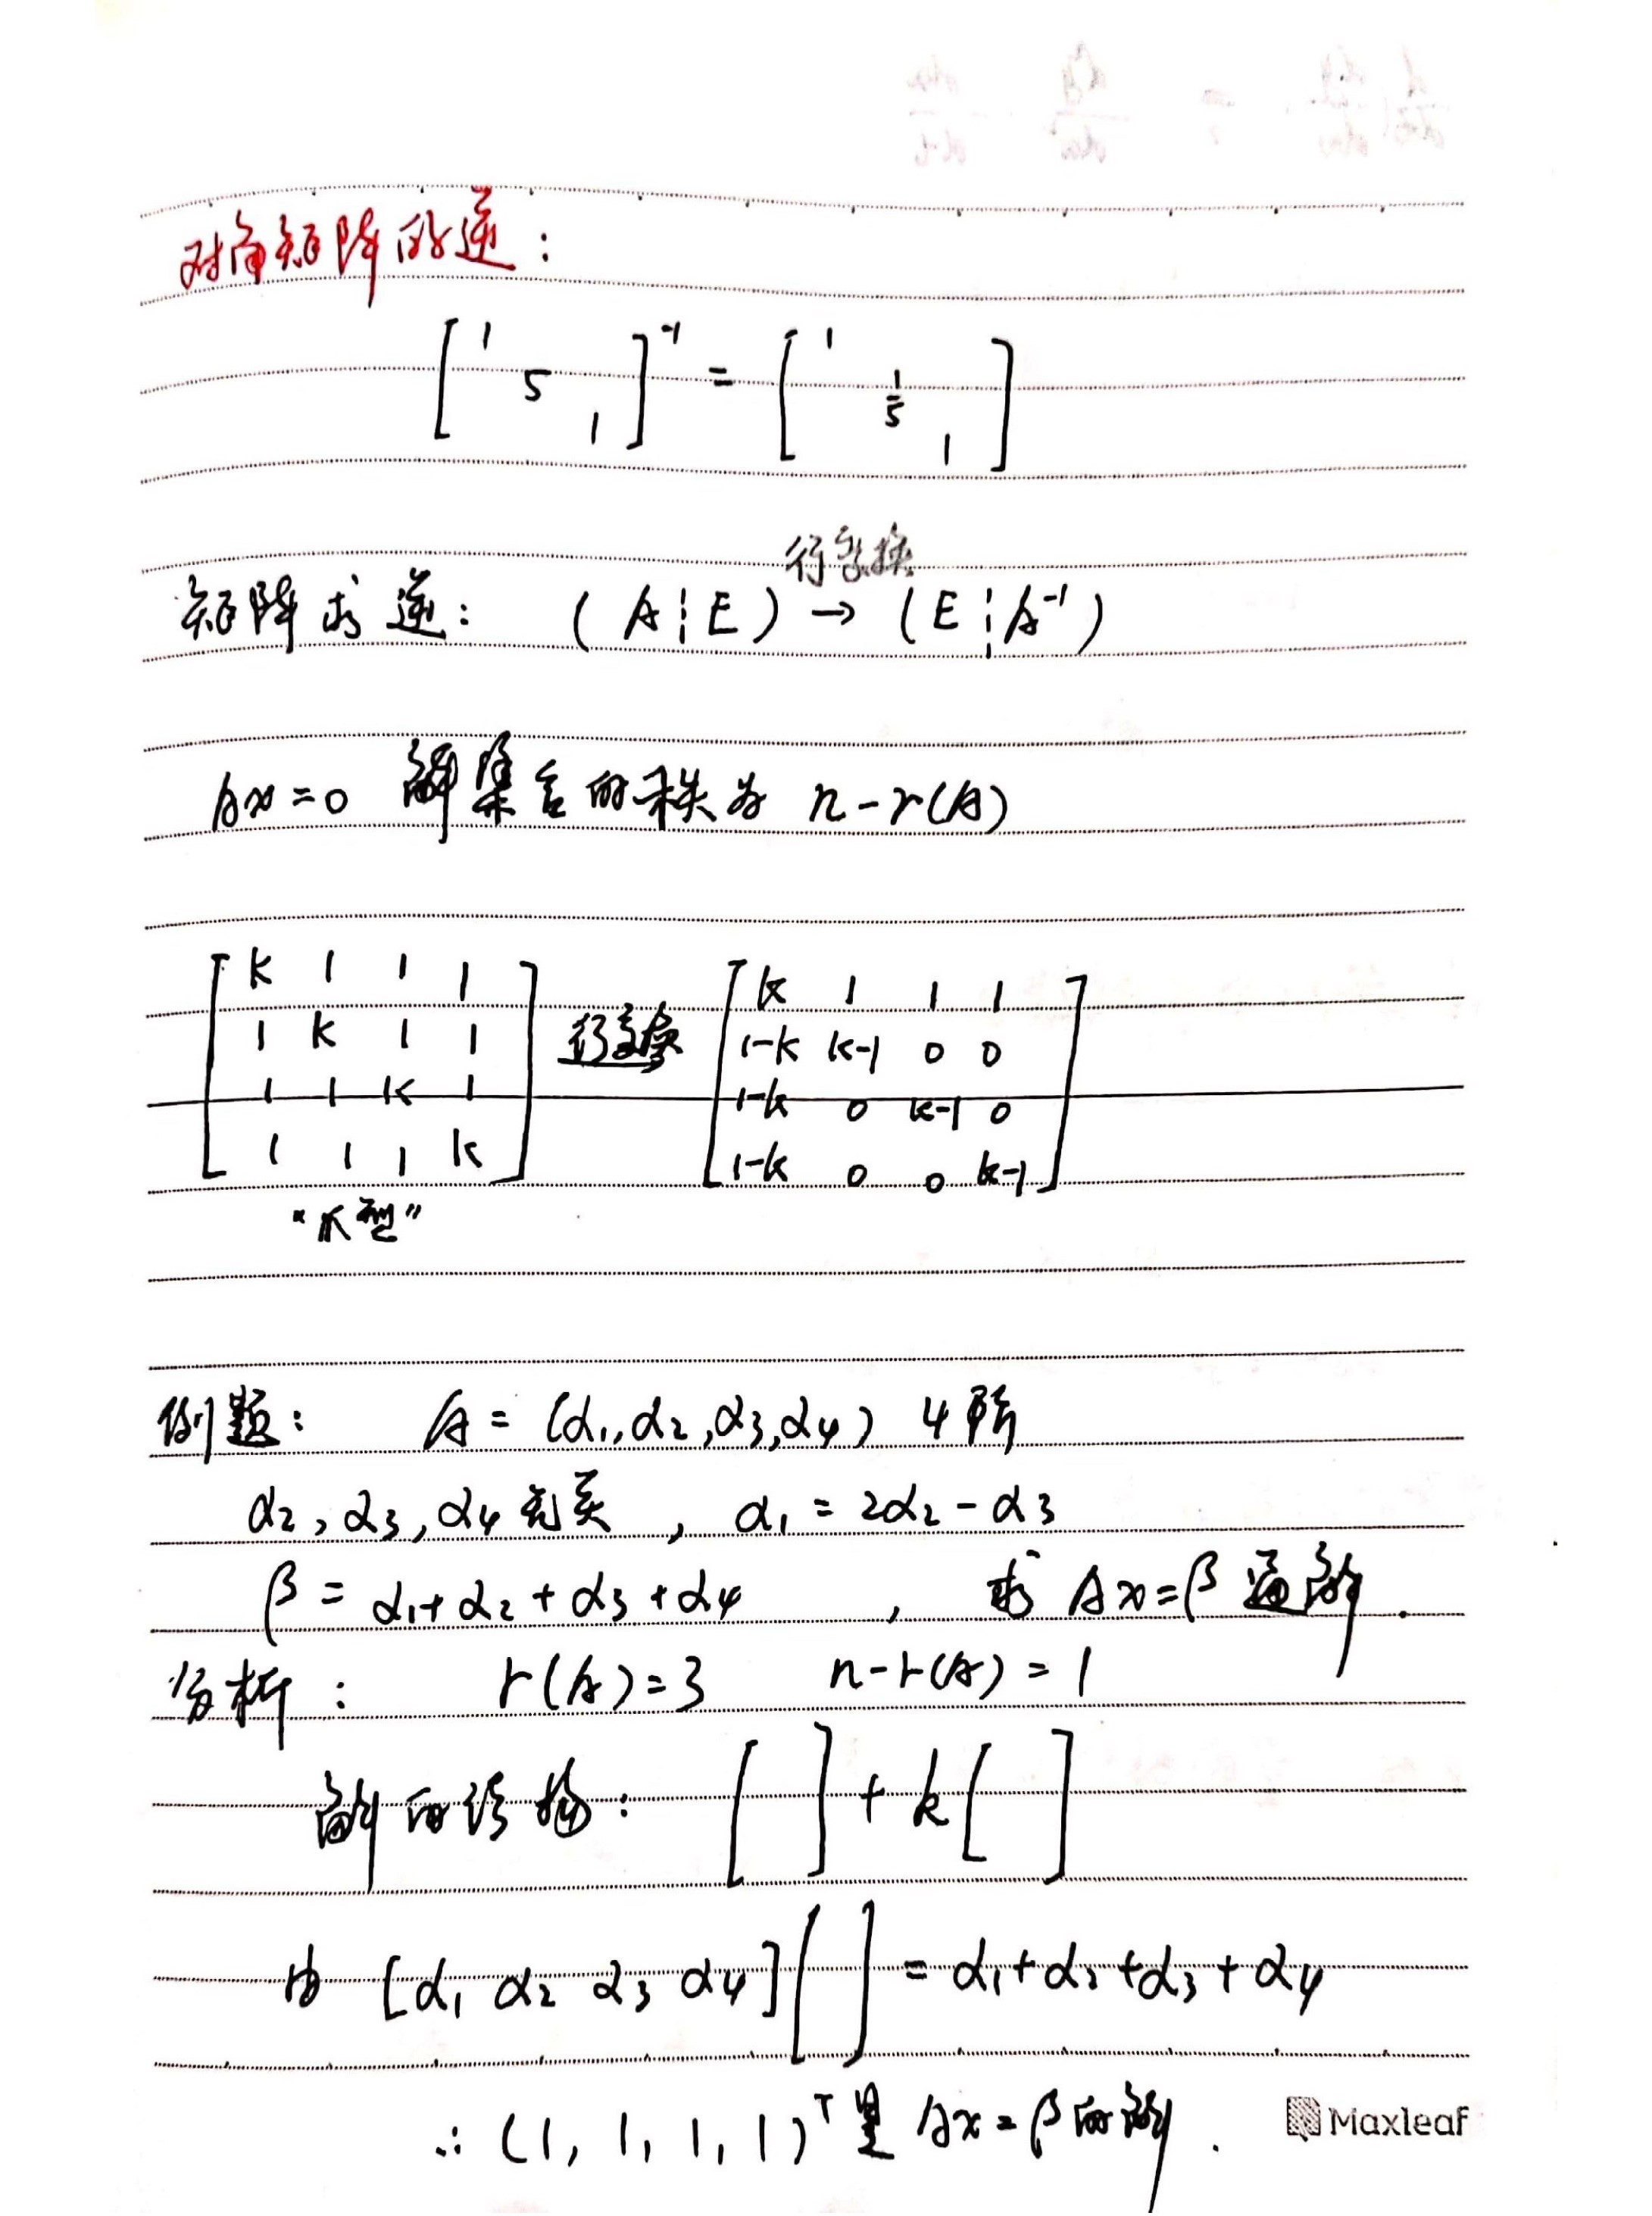 对角矩阵的逆：
[1 5 1]⁻¹ = [1 1/5 1]
行变换
矩阵求逆： (A¦E) → (E¦A⁻¹)
Ax=0 解集合的秩为 n-r(A)
[k 1 1 1
1 k 1 1
1 1 k 1
1 1 1 k]
行变换
[k 1 1 1
1-k k-1 0 0
1-k 0 k-1 0
1-k 0 0 k-1]
“爪型”
例题： A = (α₁,α₂,α₃,α₄) 4阶
α₂,α₃,α₄无关 , α₁ = 2α₂ - α₃
β = α₁+α₂+α₃+α₄ , 求 Ax=β 通解.
分析： r(A)=3 n-r(A)=1
解的结构： [ ] + k[ ]
由 [α₁ α₂ α₃ α₄][ ] = α₁+α₂+α₃+α₄
∴ (1, 1, 1, 1)ᵀ是 Ax=β的解.
Maxleaf